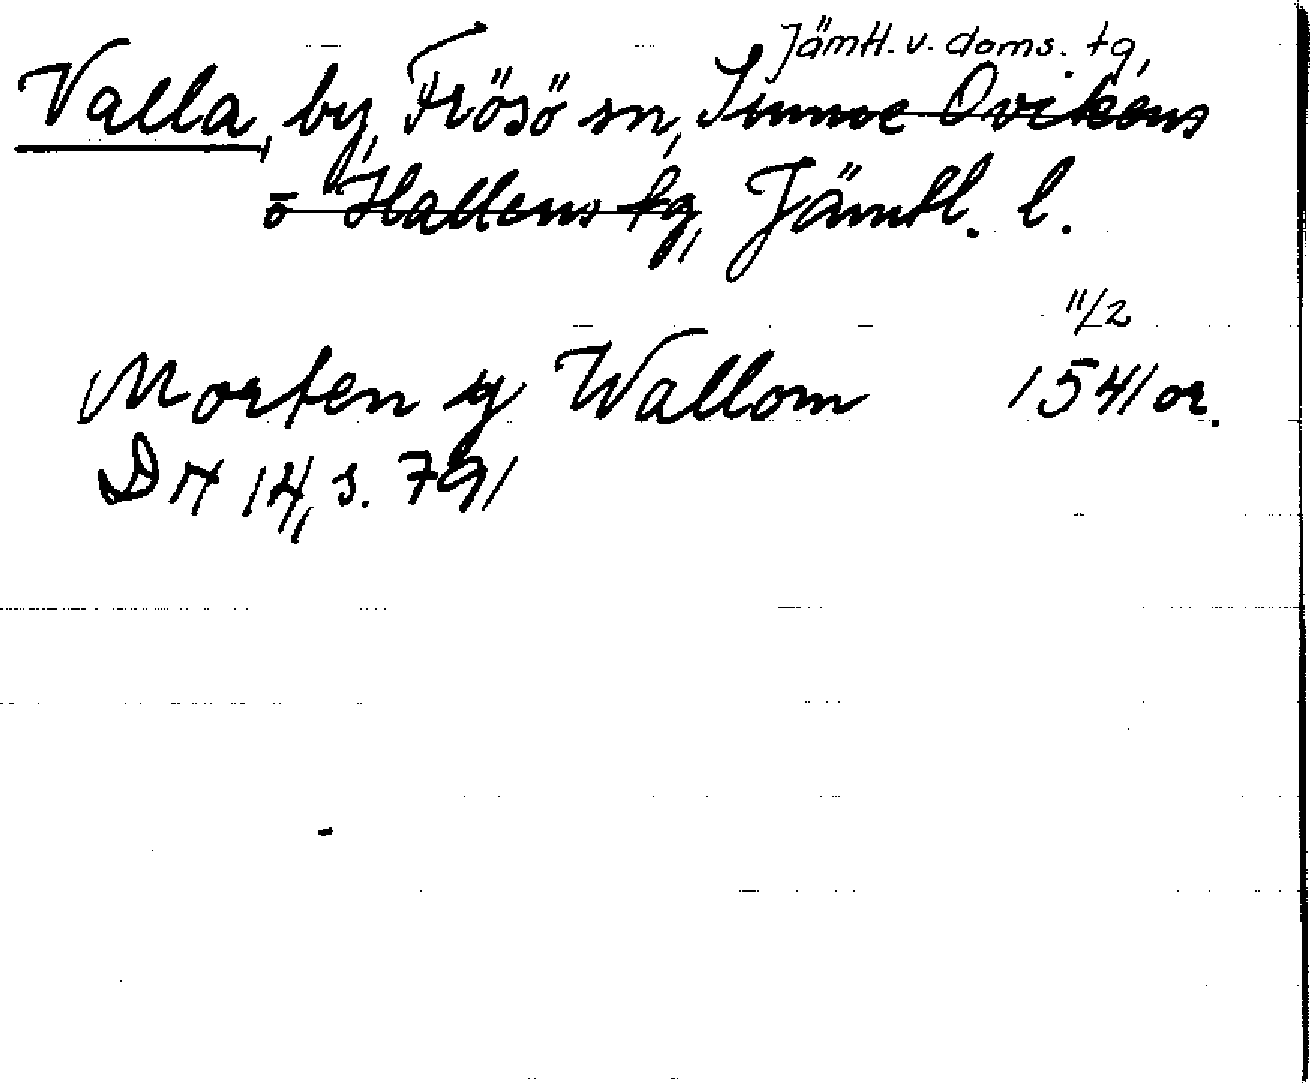 Jämtl. v. doms. tg,
Valla, by, Frösö sn, Sunne Ovikens
o Hallens tg, Jämtl. l.
11/2
Morten y Wallom 1541 or.
DN 14, s. 791